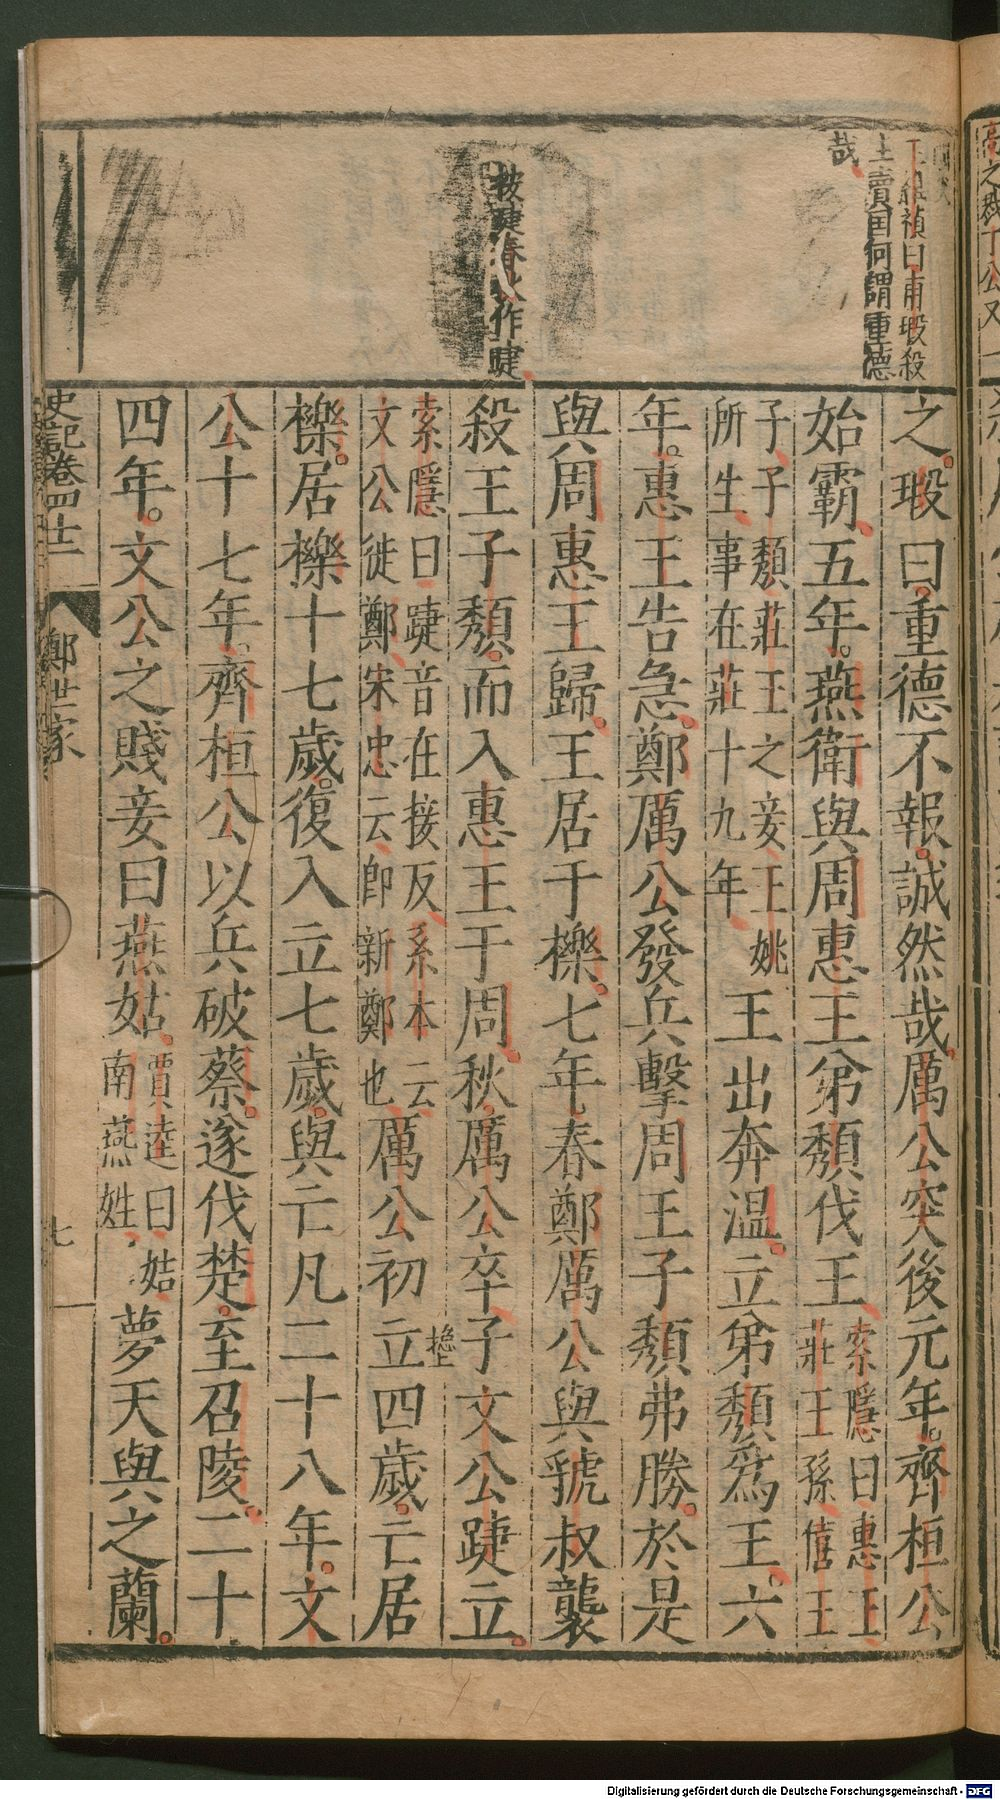 王維禎曰甫瑕殺
主賣国何謂重德
哉
按踕春秋作踕
之瑕曰重德不報誠然哉厲公突後元年齊桓公
始霸五年燕衛與周惠王弟頽伐王索隱曰惠王莊王孫僖王
子子頽莊王之妾王姚所生事在莊十九年王出奔溫立弟頽爲王六
年惠王告急鄭厲公發兵擊周王子頽弗勝於是
與周惠王歸王居于櫟七年春鄭厲公與虢叔襲
殺王子頽而入惠王于周秋厲公卒子文公踕立
索隱曰踕音在接反系本云文公徙鄭宋忠云卽新鄭也厲公初立四歲亡居
櫟居櫟十七歲復入立七歲與亡凡二十八年文
公十七年齊桓公以兵破蔡遂伐楚至召陵二十
四年文公之賤妾曰燕姞賈逵曰姞南燕姓夢天與之蘭
史記卷四十二
鄭世家
七
Digitalisierung gefördert durch die Deutsche Forschungsgemeinschaft - DFG